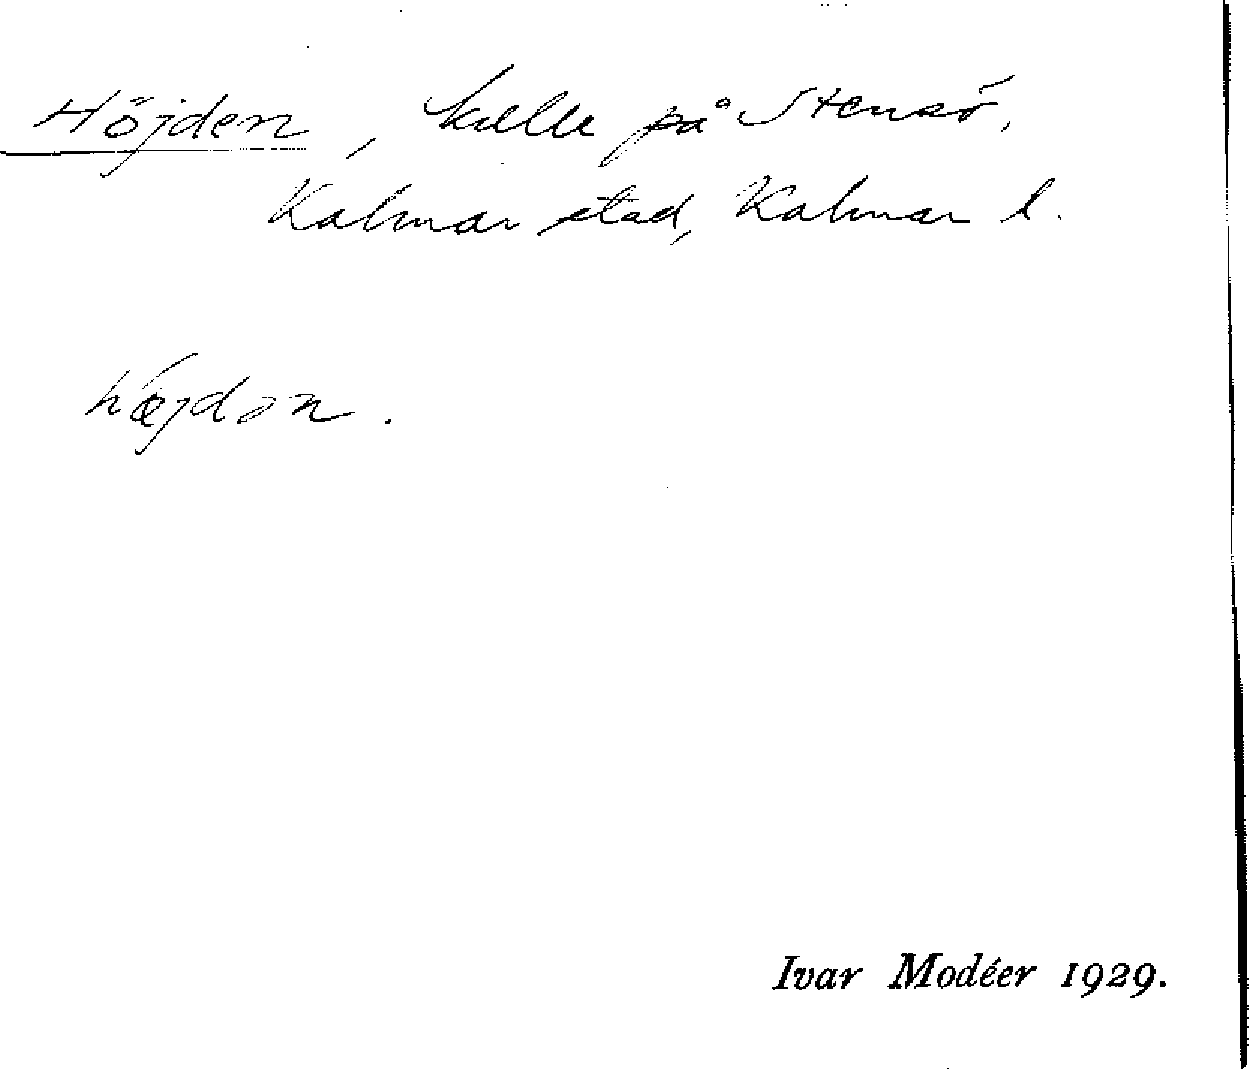 Höjden, kulle på Stensö,
Kalmar stad, Kalmar l.
hœ́jdən.
Ivar Modéer 1929.